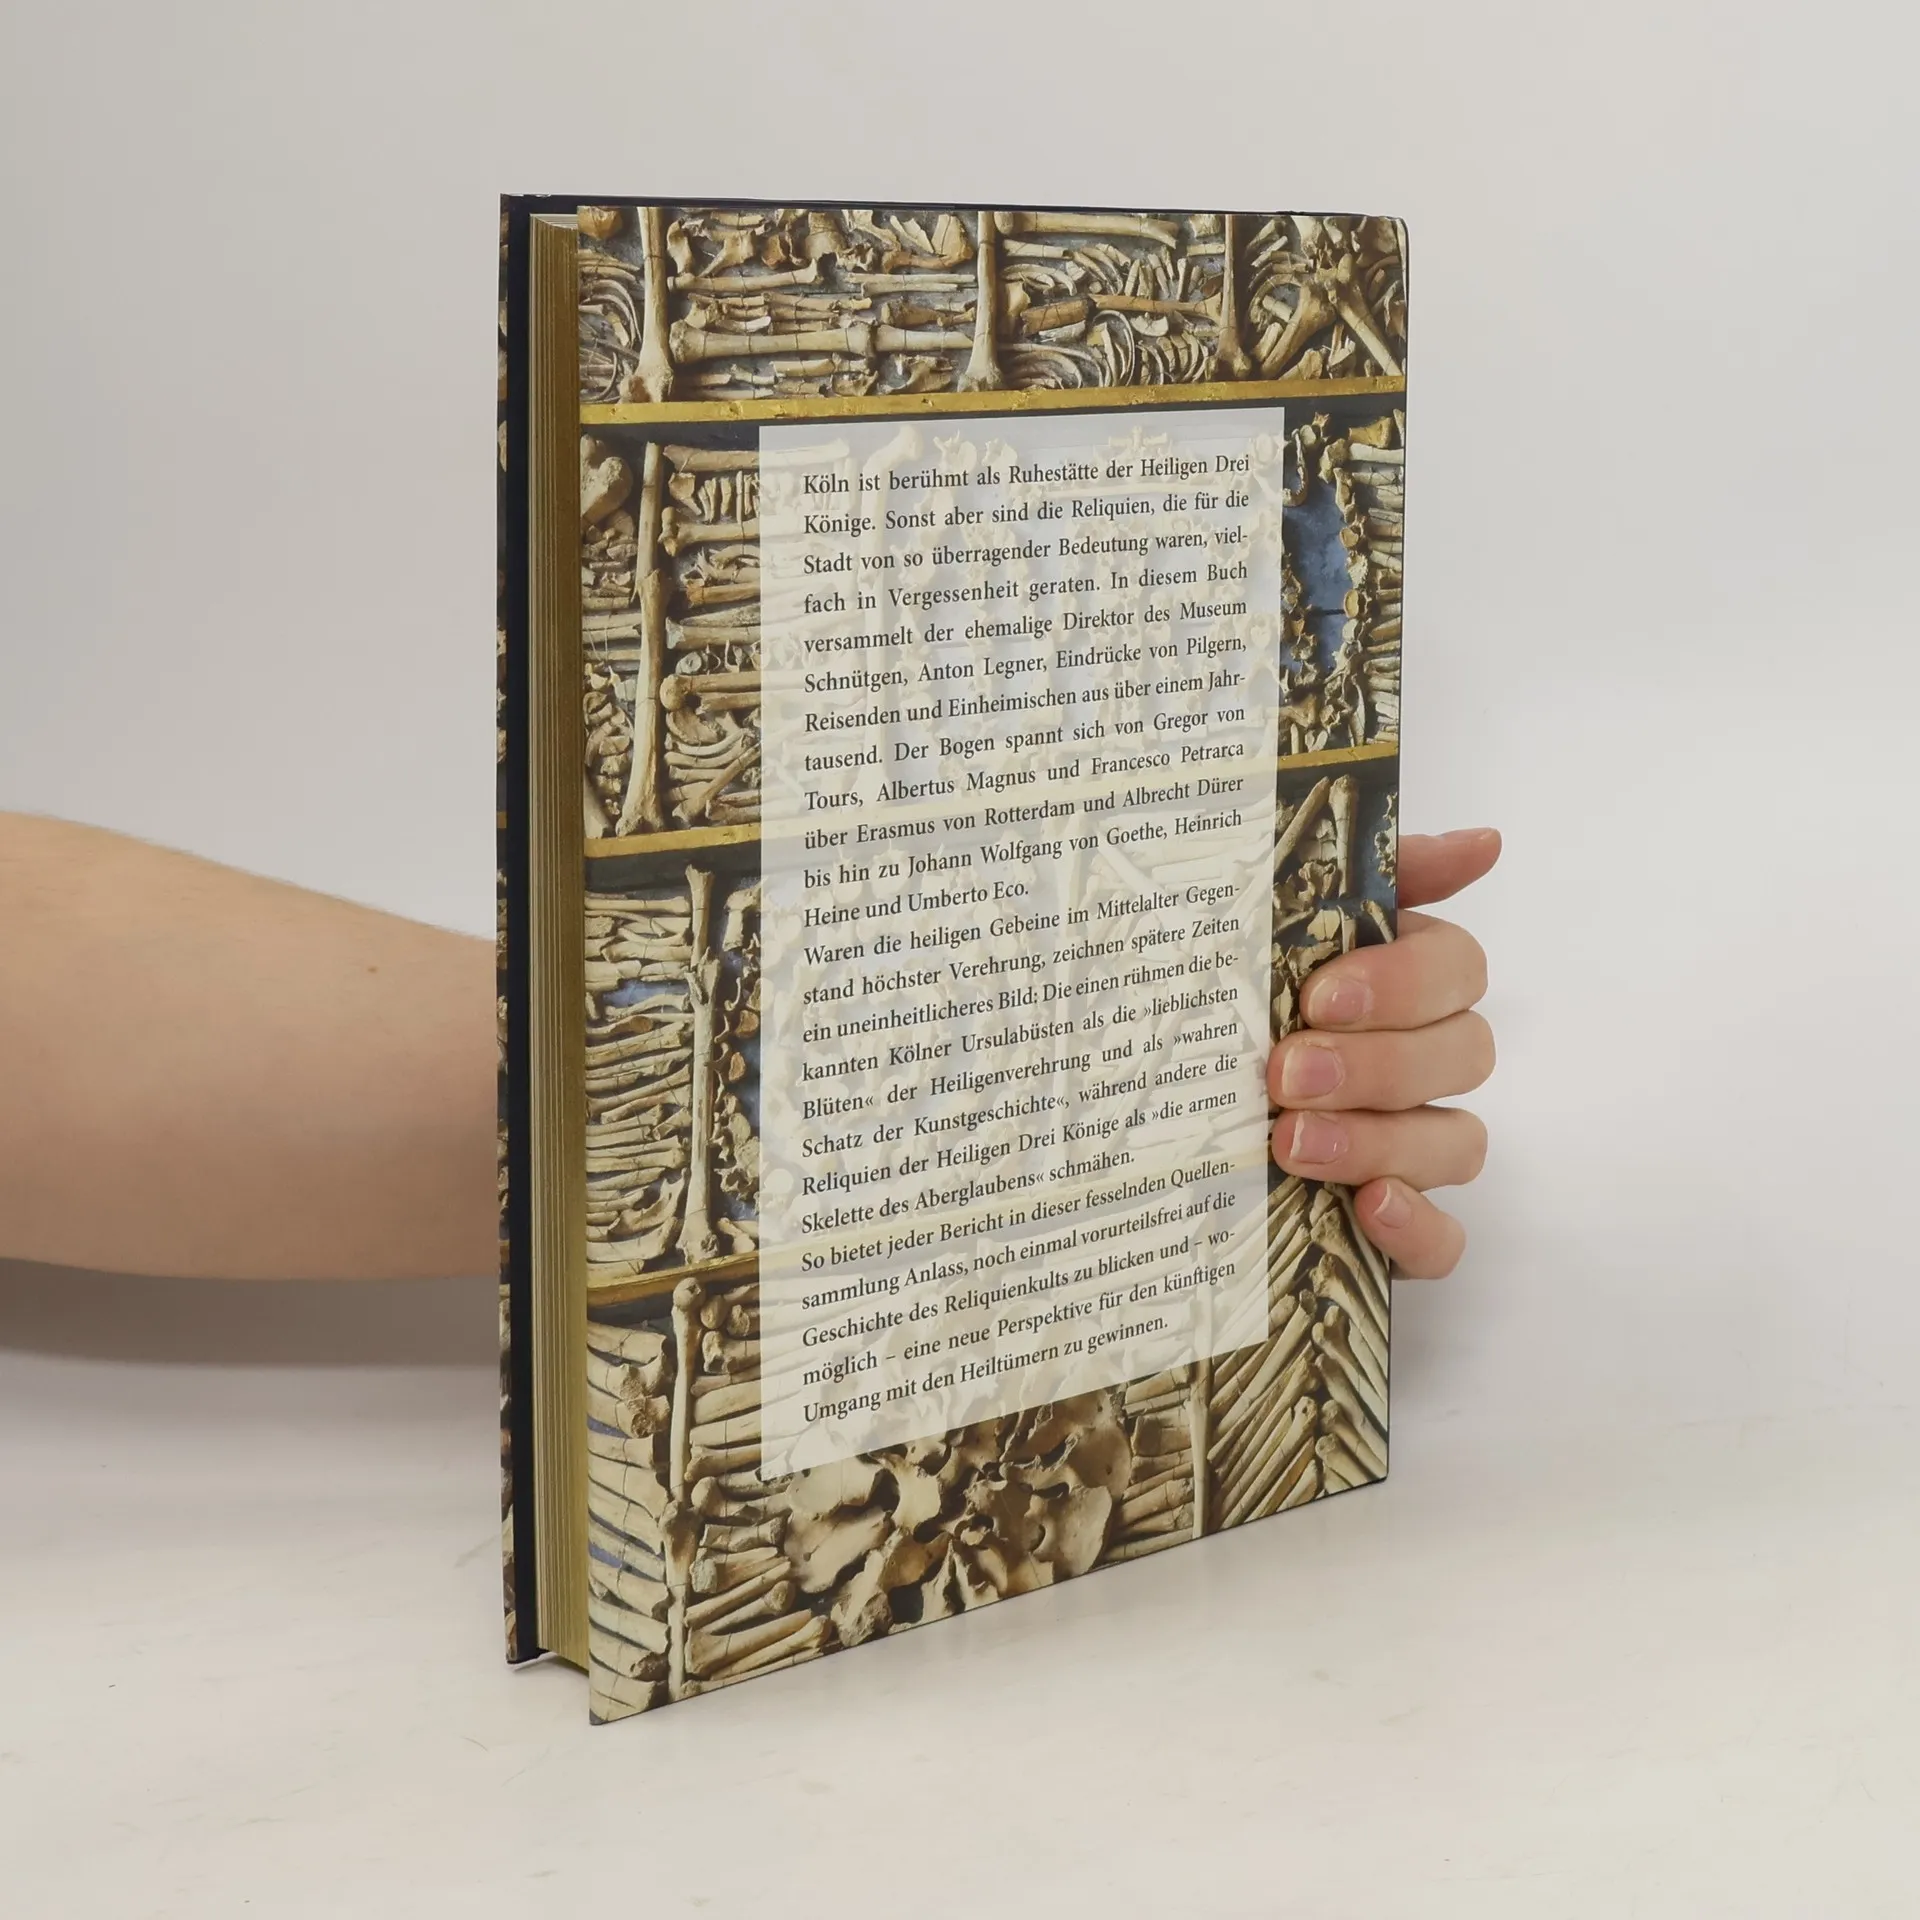 Köln ist berühmt als Ruhestätte der Heiligen Drei
Könige. Sonst aber sind die Reliquien, die für die
Stadt von so überragender Bedeutung waren, viel-
fach in Vergessenheit geraten. In diesem Buch
versammelt der ehemalige Direktor des Museum
Schnütgen, Anton Legner, Eindrücke von Pilgern,
Reisenden und Einheimischen aus über einem Jahr-
tausend. Der Bogen spannt sich von Gregor von
Tours, Albertus Magnus und Francesco Petrarca
über Erasmus von Rotterdam und Albrecht Dürer
bis hin zu Johann Wolfgang von Goethe, Heinrich
Heine und Umberto Eco.
Waren die heiligen Gebeine im Mittelalter Gegen-
stand höchster Verehrung, zeichnen spätere Zeiten
ein uneinheitlicheres Bild: Die einen rühmen die be-
kannten Kölner Ursulabüsten als die »lieblichsten
Blüten« der Heiligenverehrung und als »wahren
Schatz der Kunstgeschichte«, während andere die
Reliquien der Heiligen Drei Könige als »die armen
Skelette des Aberglaubens« schmähen.
So bietet jeder Bericht in dieser fesselnden Quellen-
sammlung Anlass, noch einmal vorurteilsfrei auf die
Geschichte des Reliquienkults zu blicken und – wo-
möglich – eine neue Perspektive für den künftigen
Umgang mit den Heiltümern zu gewinnen.